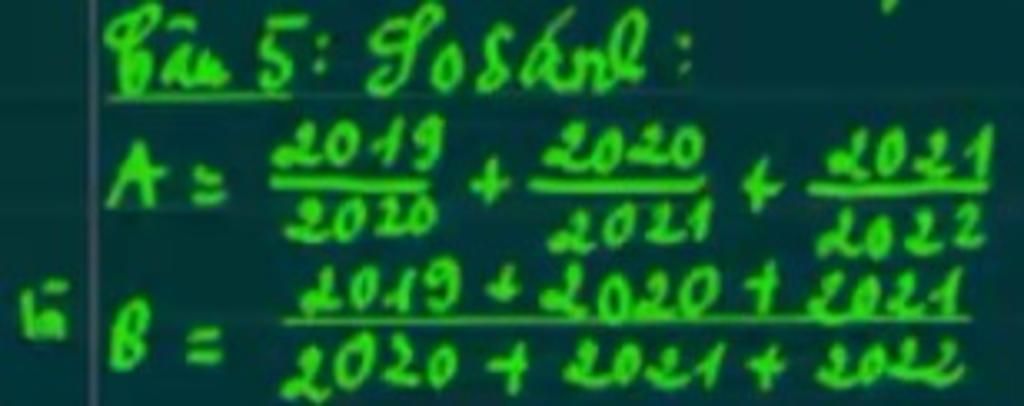 Câu 5: So sánh:
A = 2019/2020 + 2020/2021 + 2021/2022
B = 2019 + 2020 + 2021 / 2020 + 2021 + 2022